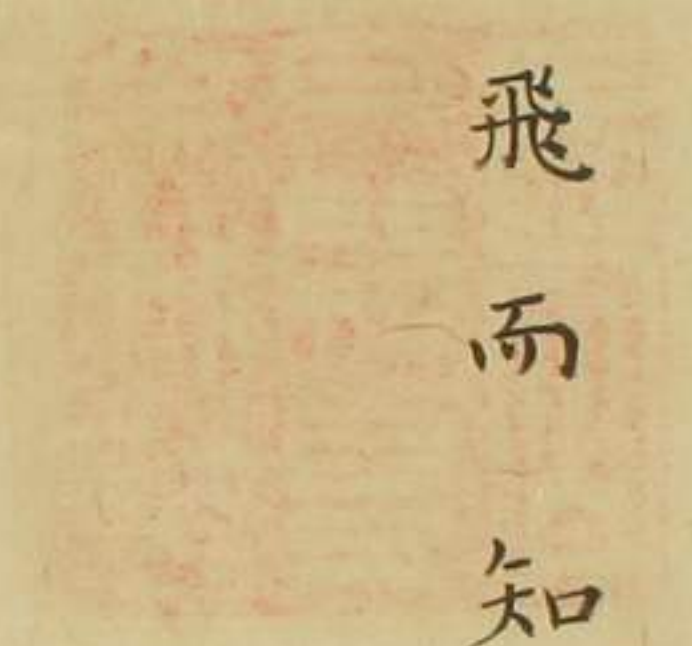 飛而知